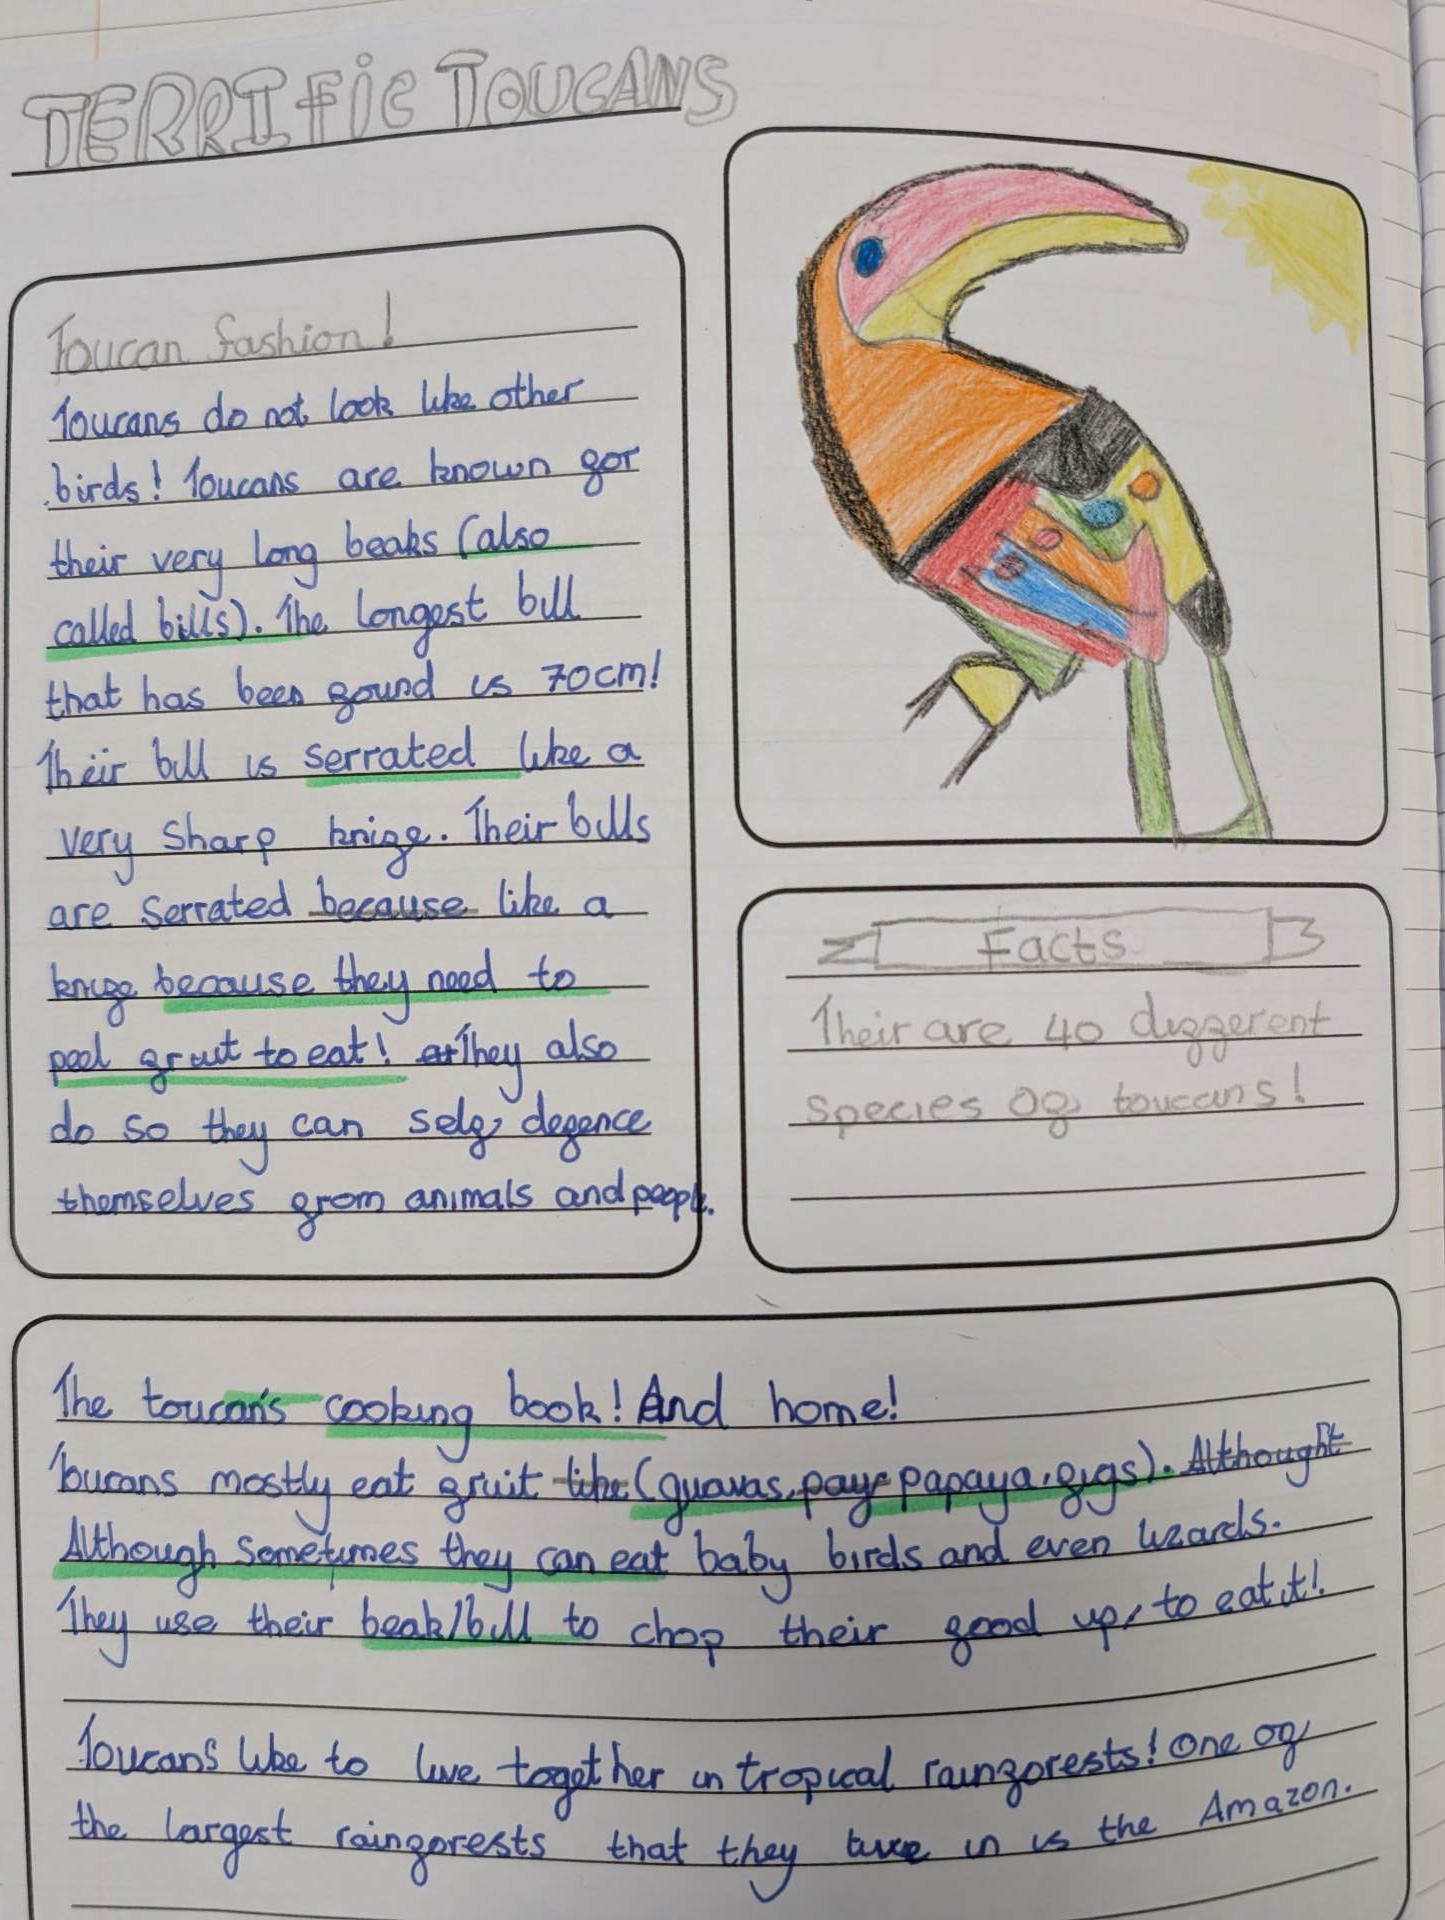 TERRIfic TOUCANS
Toucan fashion!
Toucans do not look like other
birds! Toucans are known for
their very long beaks (also
called bills). The longest bill
that has been found is 70cm!
Their bill is serrated like a
very sharp knife. Their bills
are serrated because like a
knife because they need to
peel fruit to eat! They also
do so they can self defence
themselves from animals and people.
Facts
Their are 40 different
species of toucans!
The toucan's cooking book! And home!
Toucans mostly eat fruit like (guavas, paya papaya, figs). Althought
Although sometimes they can eat baby birds and even lizards.
They use their beak/bill to chop their food up, to eat it!
Toucans like to live together in tropical rainforests! One of
the largest rainforests that they live in is the Amazon.